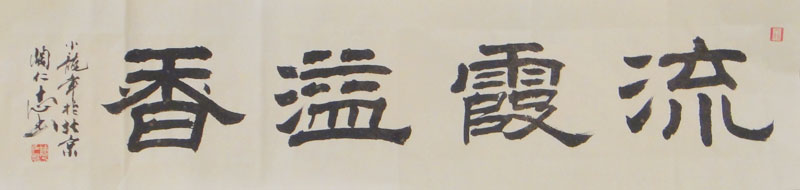 流霞溢香
小龍年於北京
陶仁志书